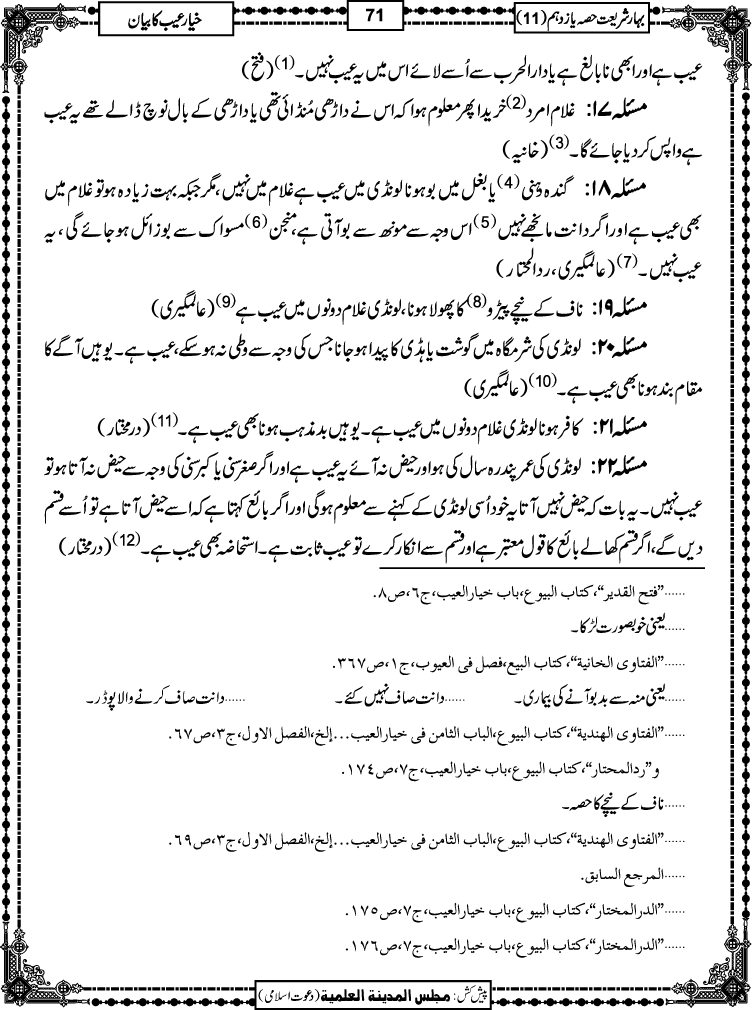 بہارشریعت حصہ یازدہم (11)
71
خیار عیب کا بیان
عیب ہے اور ابھی نابالغ ہے یا دارالحرب سے اُسے لائے اس میں یہ عیب نہیں۔(1) (فتح)
مسئلہ ۱۷: غلام امرد(2) خریدا پھر معلوم ہوا کہ اس نے داڑھی مُنڈائی تھی یا داڑھی کے بال نوچ ڈالے تھے یہ عیب
ہے واپس کردیا جائے گا۔(3) (خانیہ)
مسئلہ ۱۸: گندہ دہنی(4) یا بغل میں بو ہونا لونڈی میں عیب ہے غلام میں نہیں، مگر جبکہ بہت زیادہ ہو تو غلام میں
بھی عیب ہے اور اگر دانت مانجھے نہیں(5) اس وجہ سے مونھ سے بو آتی ہے، منجن(6) مسواک سے بو زائل ہو جائے گی، یہ
عیب نہیں۔(7) (عالمگیری، ردالمحتار)
مسئلہ ۱۹: ناف کے نیچے پیڑو(8) کا پھولا ہونا، لونڈی غلام دونوں میں عیب ہے(9) (عالمگیری)
مسئلہ ۲۰: لونڈی کی شرمگاہ میں گوشت یا ہڈی کا پیدا ہوجانا جس کی وجہ سے وطی نہ ہوسکے، عیب ہے۔ یوہیں آگے کا
مقام بند ہونا بھی عیب ہے۔(10) (عالمگیری)
مسئلہ ۲۱: کافر ہونا لونڈی غلام دونوں میں عیب ہے۔ یوہیں بدمذہب ہونا بھی عیب ہے۔(11) (درمختار)
مسئلہ ۲۲: لونڈی کی عمر پندرہ سال کی ہو اور حیض نہ آئے یہ عیب ہے اور اگر صغر سنی یا کبر سنی کی وجہ سے حیض نہ آتا ہو تو
عیب نہیں۔ یہ بات کہ حیض نہیں آتا یہ خود اُسی لونڈی کے کہنے سے معلوم ہوگی اور اگر بائع کہتا ہے کہ اسے حیض آتا ہے تو اُسے قسم
دیں گے، اگر قسم کھالے بائع کا قول معتبر ہے اور قسم سے انکار کرے تو عیب ثابت ہے۔ استحاضہ بھی عیب ہے۔(12) (درمختار)
......”الفتح القدير“، كتاب البيوع، باب خيار العيب، ج٦، ص٨.
......یعنی خوبصورت لڑکا۔
......”الفتاوى الخانية“، كتاب البيع، فصل فى العيوب، ج١، ص٣٦٧.
......یعنی منہ سے بدبو آنے کی بیماری۔ ......دانت صاف نہیں کئے۔ ......دانت صاف کرنے والا پوڈر۔
......”الفتاوى الهندية“، كتاب البيوع، الباب الثامن فى خيار العيب...إلخ، الفصل الاول، ج٣، ص٦٧.
و”ردالمحتار“، كتاب البيوع، باب خيار العيب، ج٧، ص١٧٤.
......ناف کے نیچے کا حصہ۔
......”الفتاوى الهندية“، كتاب البيوع، الباب الثامن فى خيار العيب...إلخ، الفصل الاول، ج٣، ص٦٩.
......المرجع السابق.
......”الدرالمختار“، كتاب البيوع، باب خيار العيب، ج٧، ص١٧٥.
......”الدرالمختار“، كتاب البيوع، باب خيار العيب، ج٧، ص١٧٦.
پیش کش: مجلس المدينة العلمية (دعوت اسلامی)